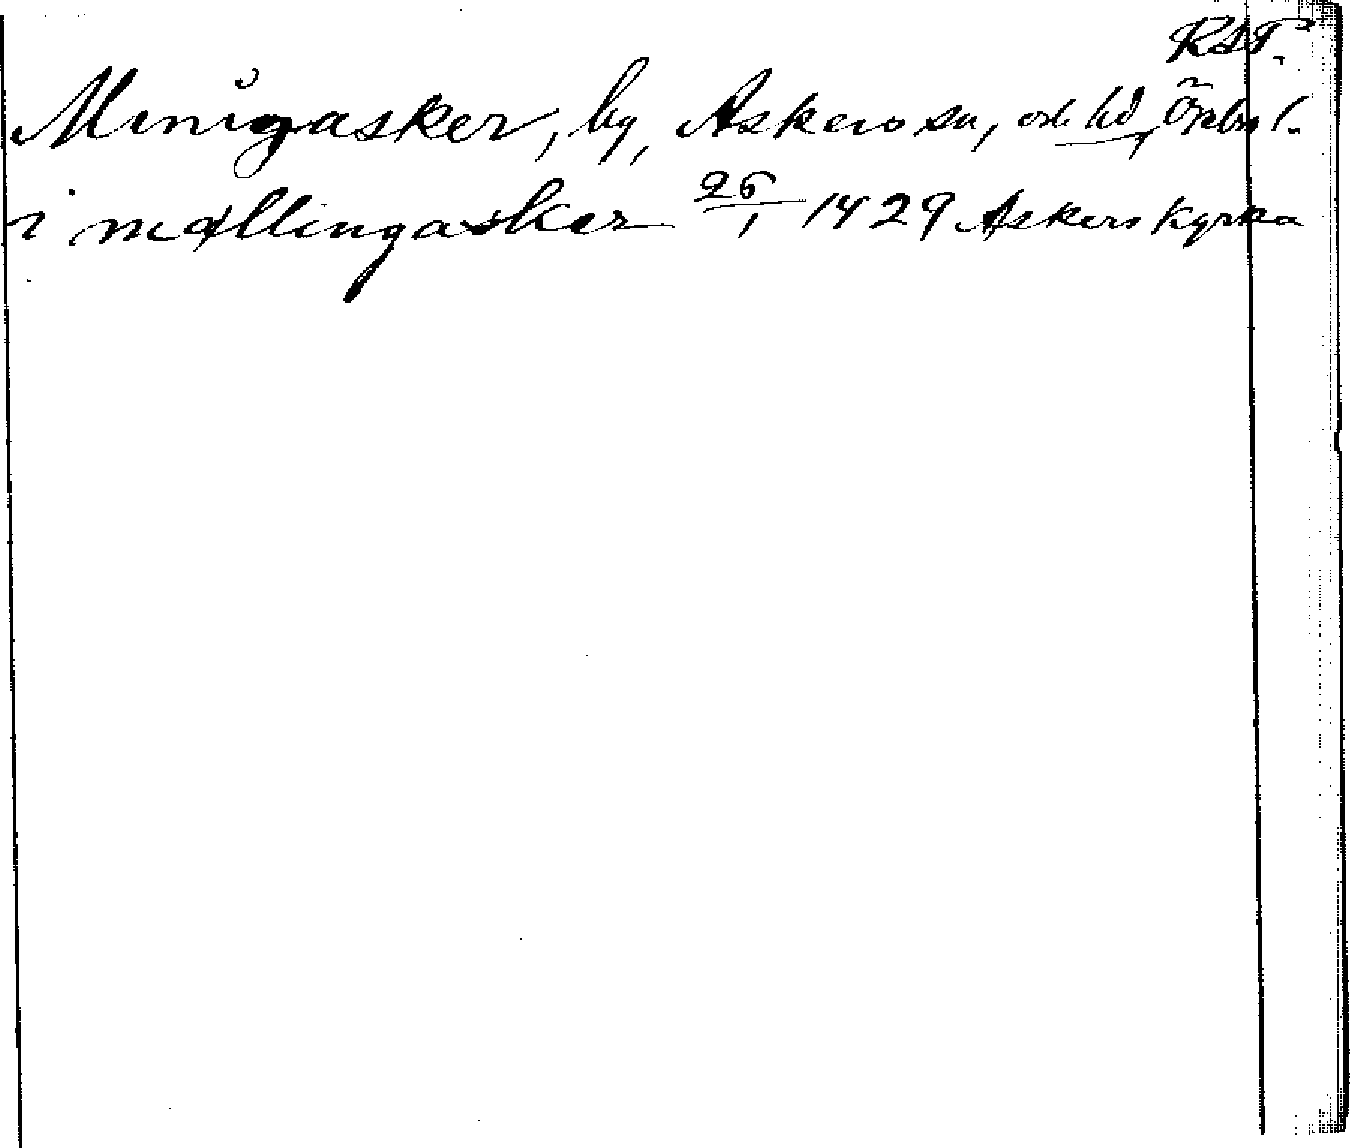 RST.
Miningasker, by, Askers sn, och hd, Örebro l.
i møllingasker 26/1 1429 Askers kyrka